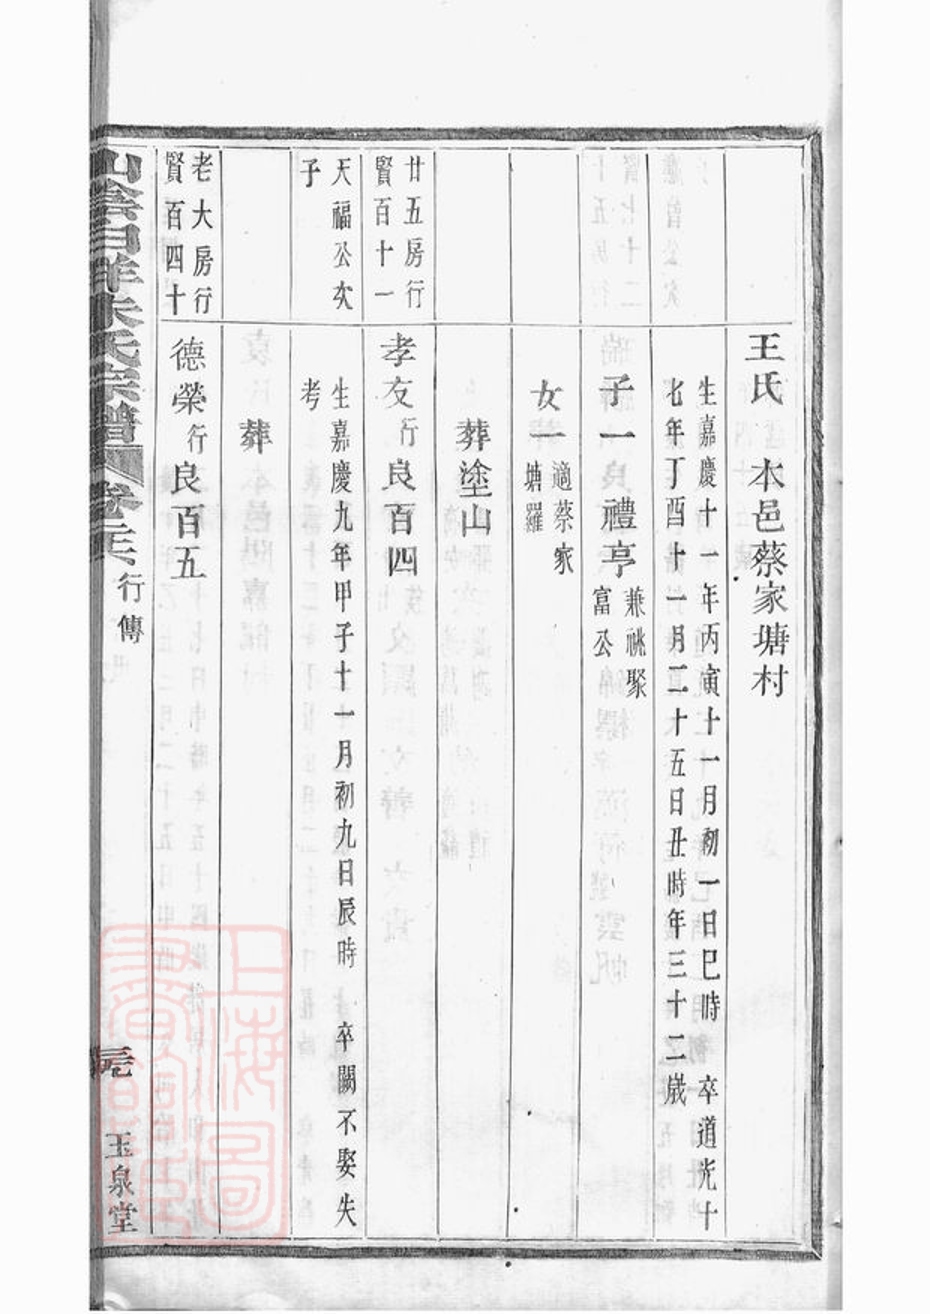 王氏 本邑蔡家塘村
生嘉慶十一年丙寅十一月初一日巳時 卒道光十
七年丁酉十一月二十五日丑時年三十二歲
子一 禮亨 兼祧聚
富公
女一 適蔡家
塘羅
葬塗山
廿五房行
賢百十一
孝友 行 良百四
天福公次
子
生嘉慶九年甲子十一月初九日辰時 卒闕不娶失
考
葬
老大房行
賢百四十
德榮 行 良百五
山陰白洋朱氏宗譜 卷二十六 行傳
玉泉堂